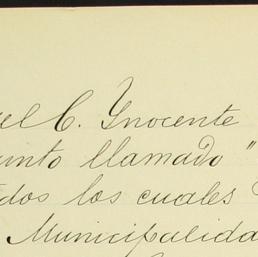 el C. Ynocente
unto llamado "
dos los cuales
Municipalida